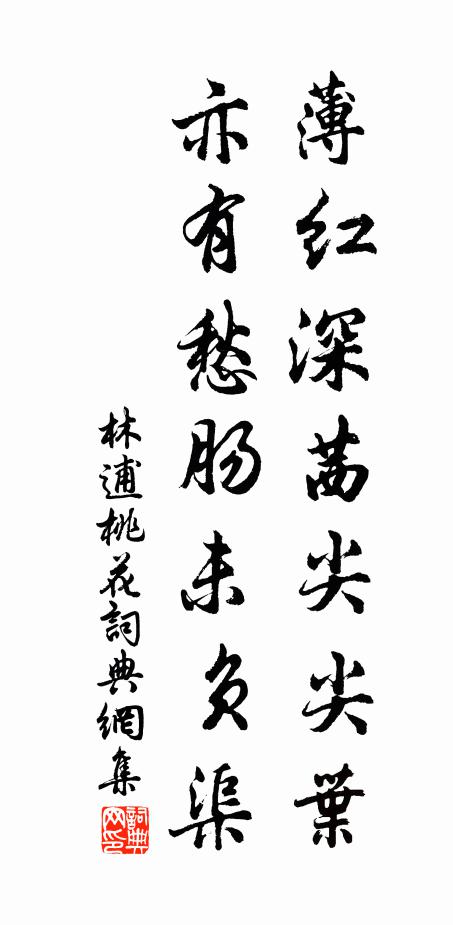 薄红深茜尖尖葉
亦有愁肠未负渠
林逋桃花詞典網集
詞典网印